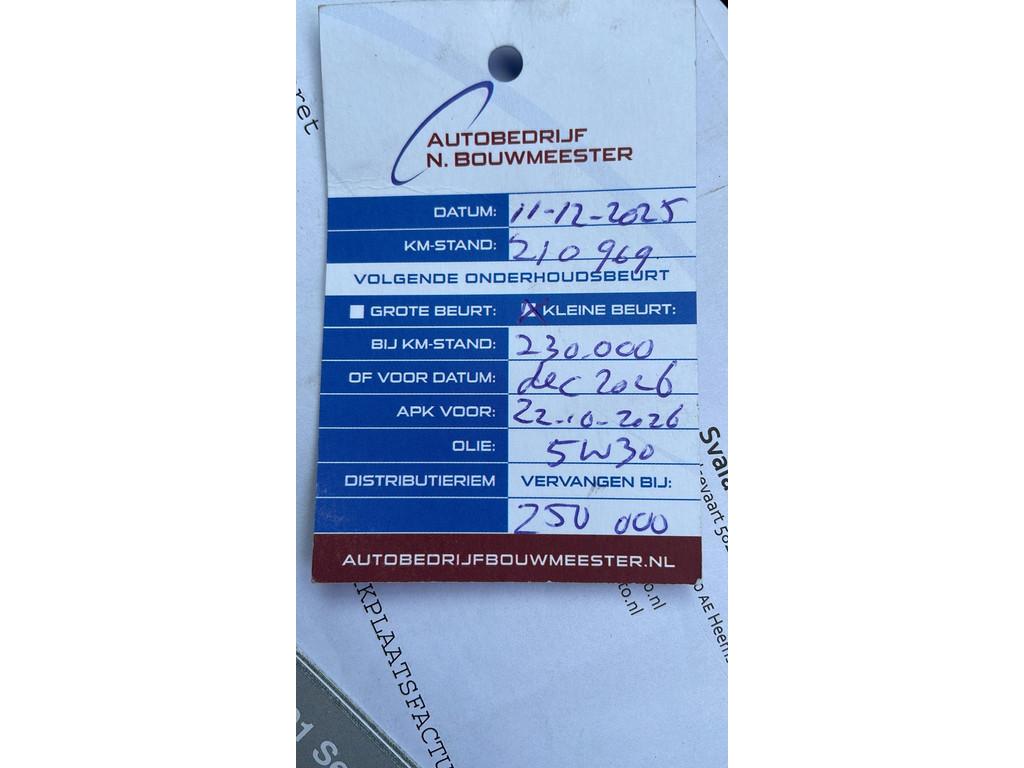 AUTOBEDRIJF
N. BOUWMEESTER
DATUM: 11-12-2025
KM-STAND: 210 969
VOLGENDE ONDERHOUDSBEURT
GROTE BEURT: X KLEINE BEURT:
BIJ KM-STAND: 230.000
OF VOOR DATUM: dec 2026
APK VOOR: 22-10-2026
OLIE: 5W30
DISTRIBUTIERIEM VERVANGEN BIJ:
250 000
AUTOBEDRIJFBOUWMEESTER.NL
ret
Svala
evaart 582
AE Heems
o.nl
to.nl
KPLAATSFACTU
01 Se